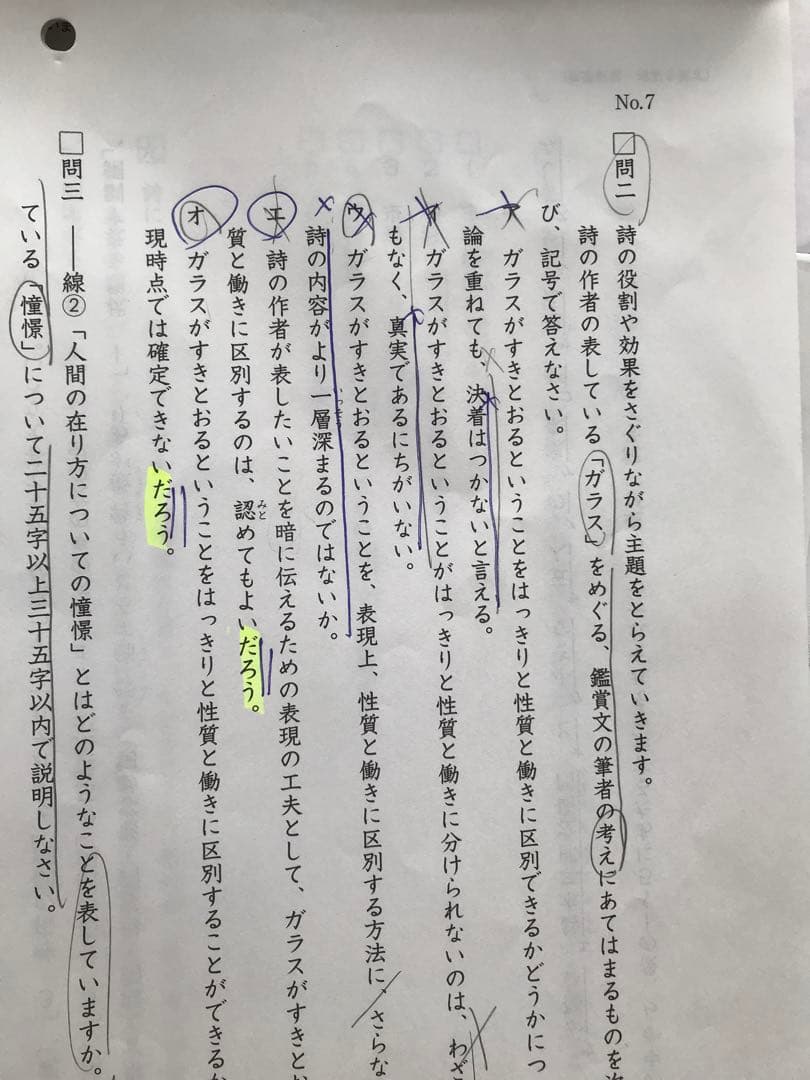 No.7
問二
詩の役割や効果をさぐりながら主題をとらえていきます。
詩の作者の表している「ガラス」をめぐる、鑑賞文の筆者の考えにあてはまるものを次
び、記号で答えなさい。
ア ガラスがすきとおるということをはっきりと性質と働きに区別できるかどうかにつ
論を重ねても、決着はつかないと言える。
イ ガラスがすきとおるということがはっきりと性質と働きに分けられないのは、わざ
もなく、真実であるにちがいない。
ウ ガラスがすきとおるということを、表現上、性質と働きに区別する方法に、さらな
詩の内容がより一層深まるのではないか。
エ 詩の作者が表したいことを暗に伝えるための表現の工夫として、ガラスがすきとお
質と働きに区別するのは、認めてもよいだろう。
みと
オ ガラスがすきとおるということをはっきりと性質と働きに区別することができるか
現時点では確定できないだろう。
問三 ――線②「人間の在り方についての憧憬」とはどのようなことを表していますか。
ている「憧憬」について二十五字以上三十五字以内で説明しなさい。